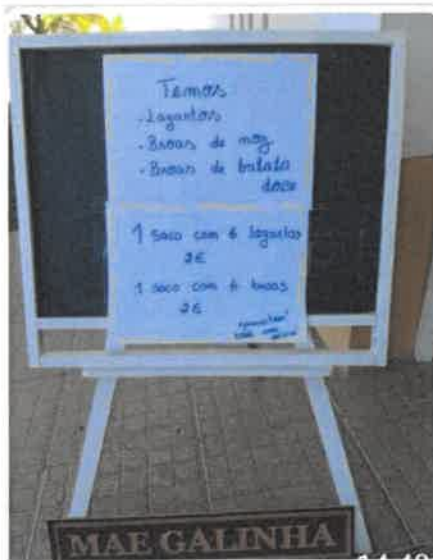 Temos
- Lagartos
- Broas de noz
- Broas de batata
doce
1 saco com 6 lagartos
2€
1 saco com 6 broas
2€
MAE GALINHA